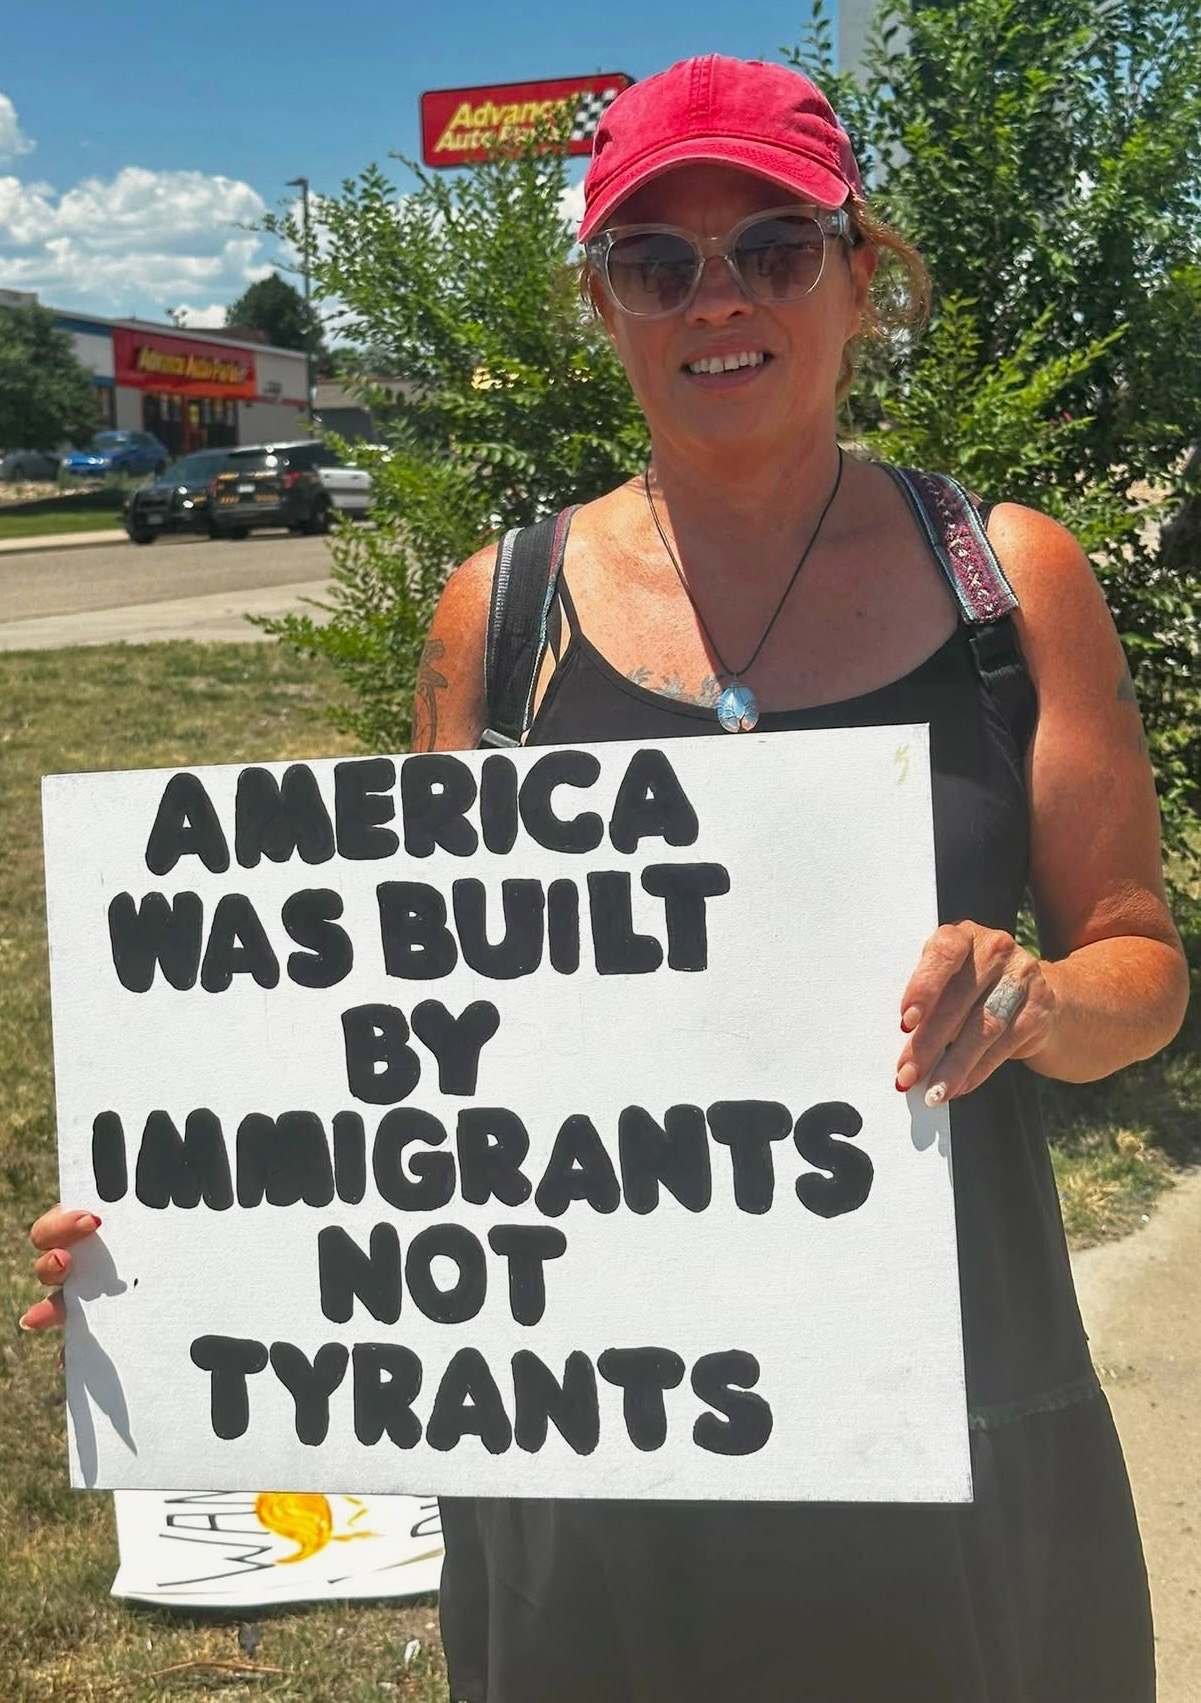 Advance
Auto Parts
Advance Auto Parts
AMERICA
WAS BUILT
BY
IMMIGRANTS
NOT
TYRANTS
WAN